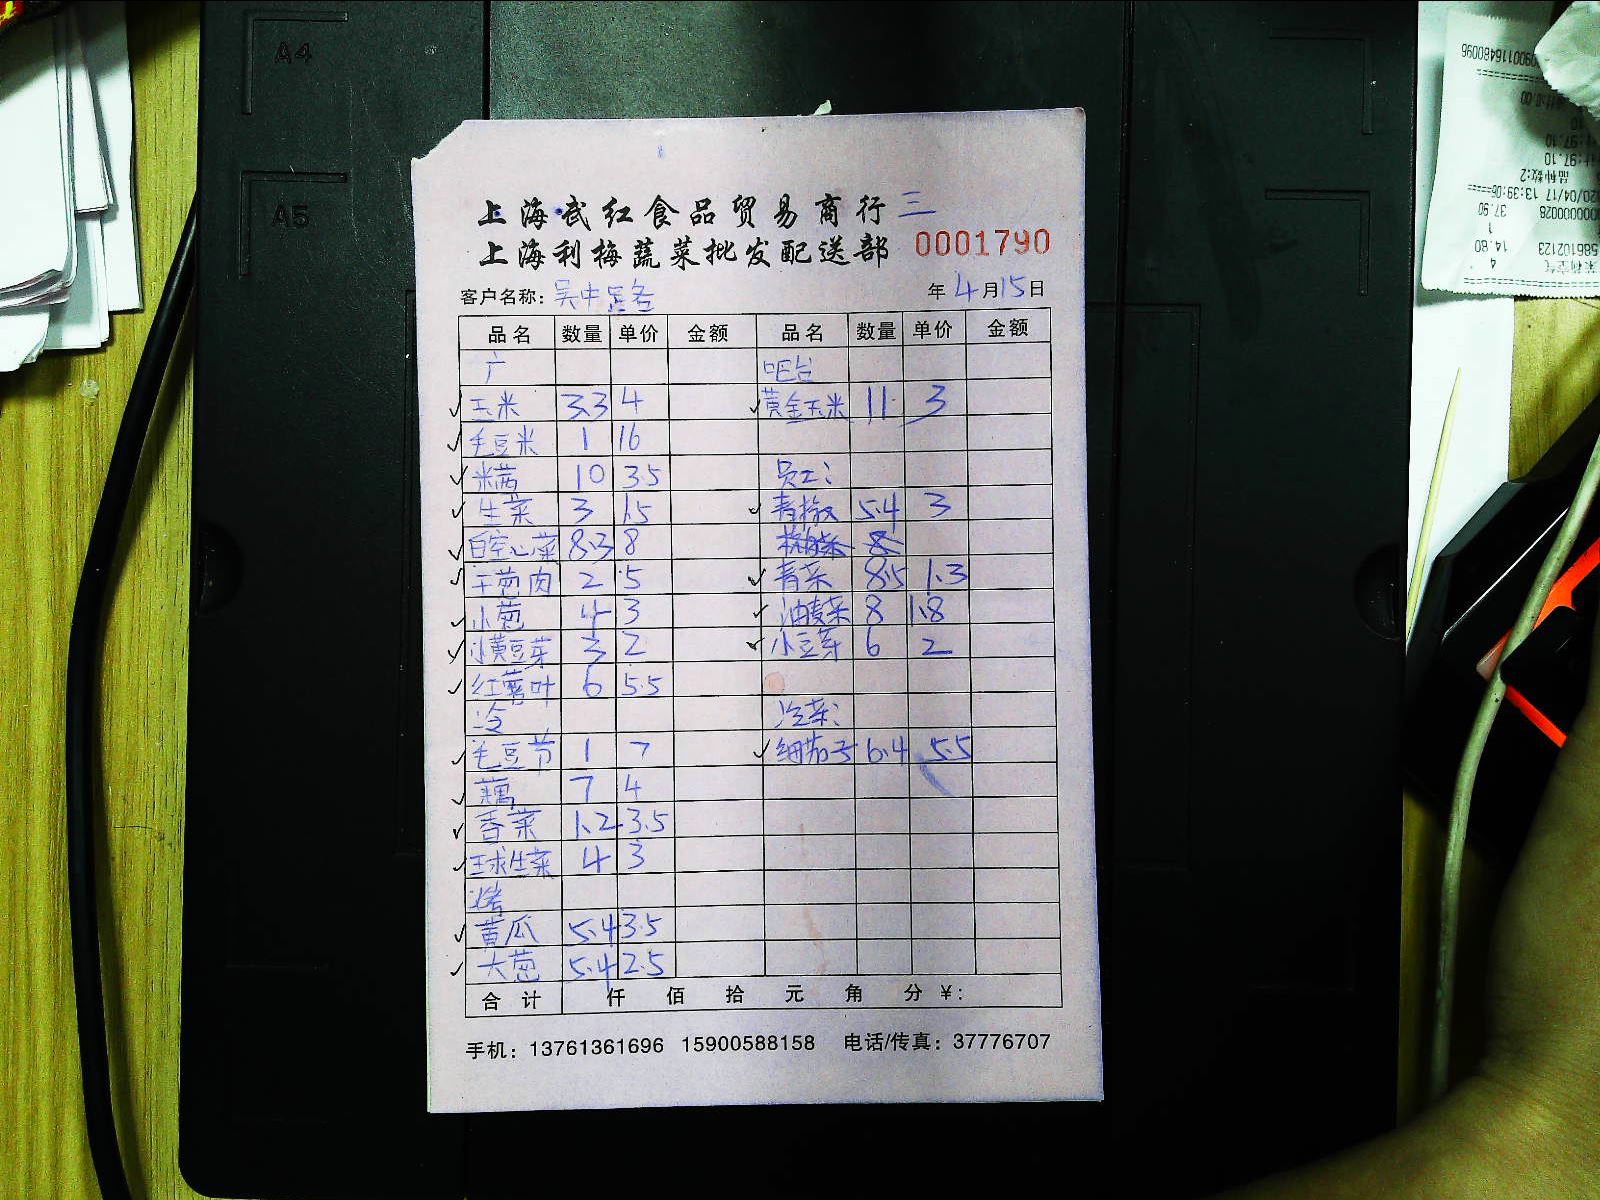 A4
A5
上海武红食品贸易商行 三
上海利梅蔬菜批发配送部 0001790
客户名称：吴中 年 4月15日
品名 数量 单价 金额 品名 数量 单价 金额
广 吧台
玉米 3.3 4 黄金玉米 11 3
毛豆米 1 16
米茜 10 3.5 员工：
生菜 3 1.5 青椒 5.4 3
白空心菜 8.3 8
干葱肉 2 5 青菜 8.5 1.3
小葱 4 3 油麦菜 8 1.8
小黄豆芽 3 2 小豆芽 6 2
红薯叶 6 5.5
冷
毛豆节 1 7 细茄子 6.4 5.5
藕 7 4
香菜 1.2 3.5
球生菜 4 3
烤
黄瓜 5.4 3.5
大葱 5.4 2.5
合计 仟 佰 拾 元 角 分 ¥：
手机：13761361696 15900588158 电话/传真：37776707